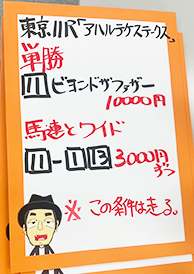 東京11R「アハルテケステークス」
単勝
11 ビヨンドザファザー
10000円
馬連とワイド
11-13 3000円
ずつ
※この条件は走る。